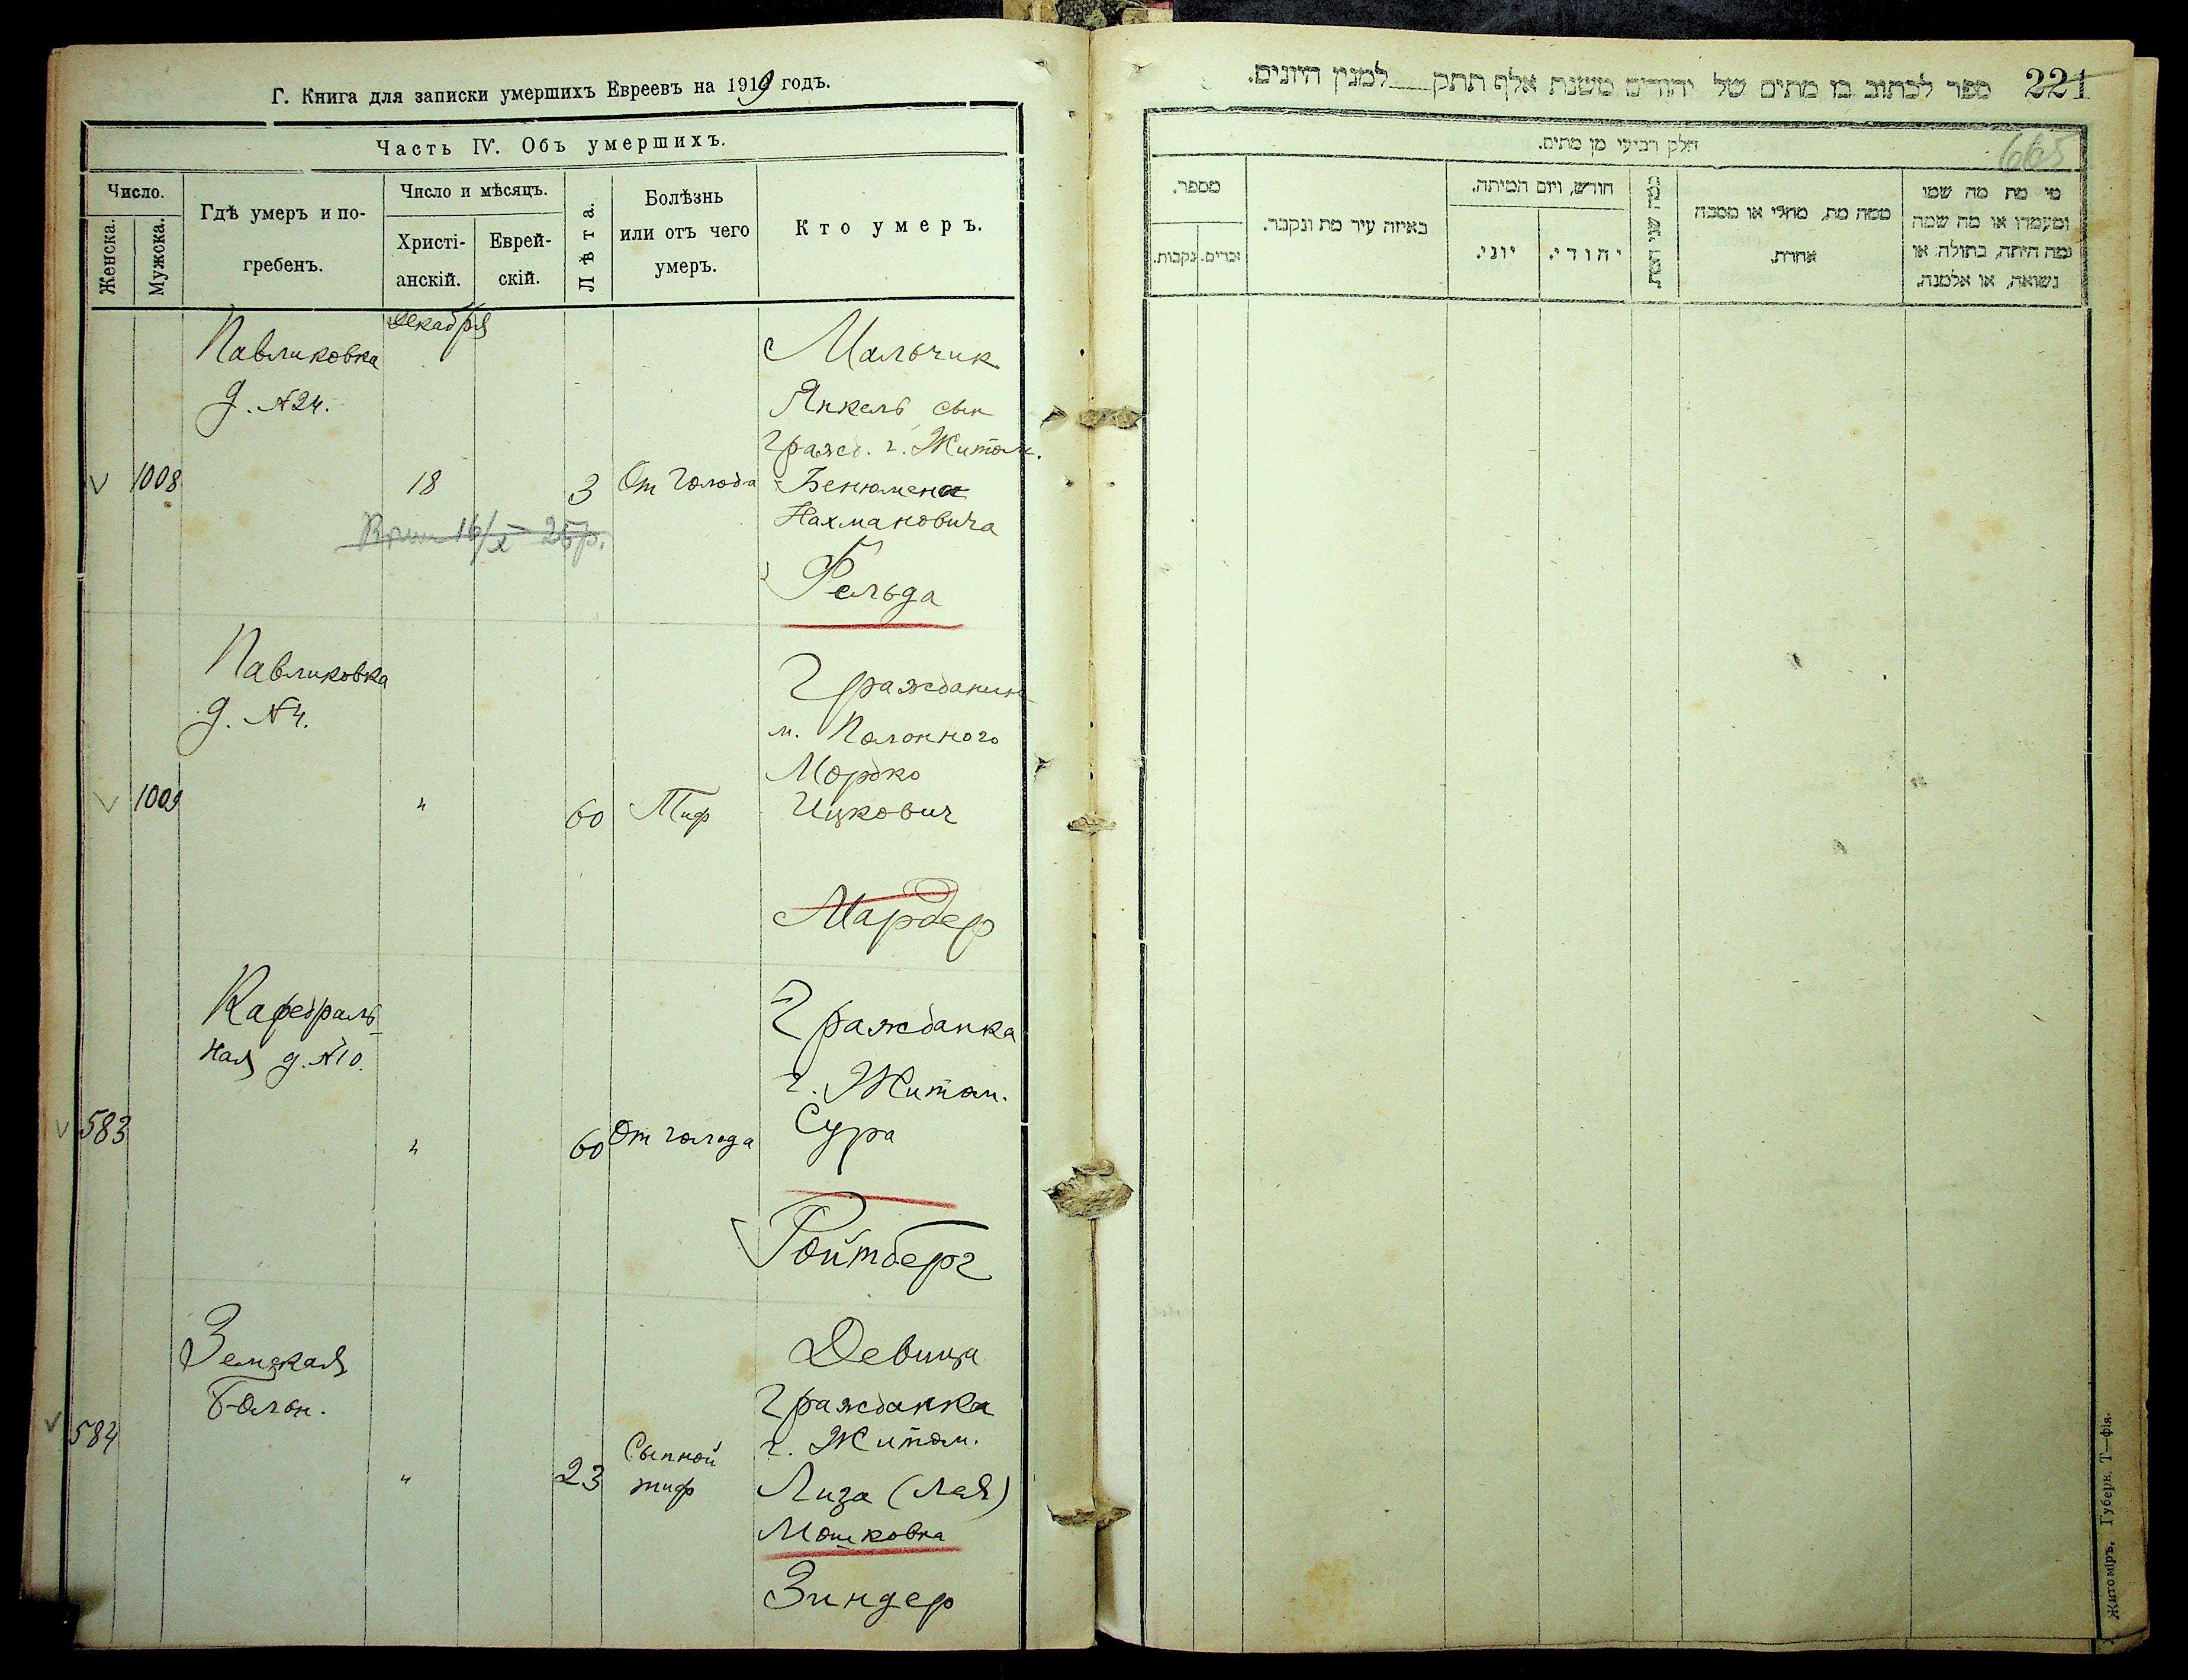 Г. Книга для записки умершихъ Евреевъ на 1919 годъ.
Часть IV. Объ умершихъ.
Число.
Женска.
Мужска.
Гдѣ умеръ и по-
гребенъ.
Число и мѣсяцъ.
Христі-
анскій.
Еврей-
скій.
Лѣта.
Болѣзнь
или отъ чего
умеръ.
Кто умеръ.
Декабря
Павликовка
д. №24.
Мальчик
Янкель сын
гражд. г. Житом.
1008
18
3
От голода
Бенюмена
Нахмановича
16/X 25 р.
Фельда
Павликовка
д. №4.
Гражданин
м. Полонного
Мордко
1009
"
60
Тиф
Ицкович
Мардер
Кафедраль-
ная д. №10.
Гражданка
г. Житом.
583
"
60
От голода
Сура
Ройтберг
Земская
Больн.
Девица
Гражданка
г. Житом.
584
"
23
Сыпной
тиф
Лиза (Лея)
Мошковна
Зиндер
ספר לכתוב בו מתים של יהודים משנת אלף תתק למנין היונים.
221
665
חלק רביעי מן מתים.
מספר.
נקבות.
זכרים.
באיזה עיר מת ונקבר.
חודש, ויום המיתה.
יוני.
יהודי.
כמה שני המת.
ממה מת, מחלי או מסבה
אחרת.
מי מת מה שמו
ומעמדו או מה שמה
ומה היתה, בתולה, או
נשואה, או אלמנה.
Житоміръ, Губерн. Т—фія.